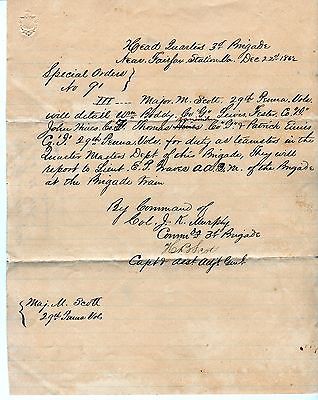 Head Quarters 3d Brigade
Near Fairfax Station Va. Dec 22d 1862
Special Orders
No 91
III Major M. Scott, 29th Penna. Vols.
will detail Wm Boddy, Co "G", Lewis Co "H"
John Co Thomas Co "G" & Patrick
Co "I" 29th Penna. Vols. for duty as teamsters in the
Quarter Masters Dept of this Brigade, They will
report to Lieut. E. P. A.A.Q.M. of the Brigade
at the Brigade train
By Command of
Col. J. K. Murphy
Commd'g 3d Brigade
Capt & Asst Adjt Genl
Maj. M. Scott
29th Penna Vols